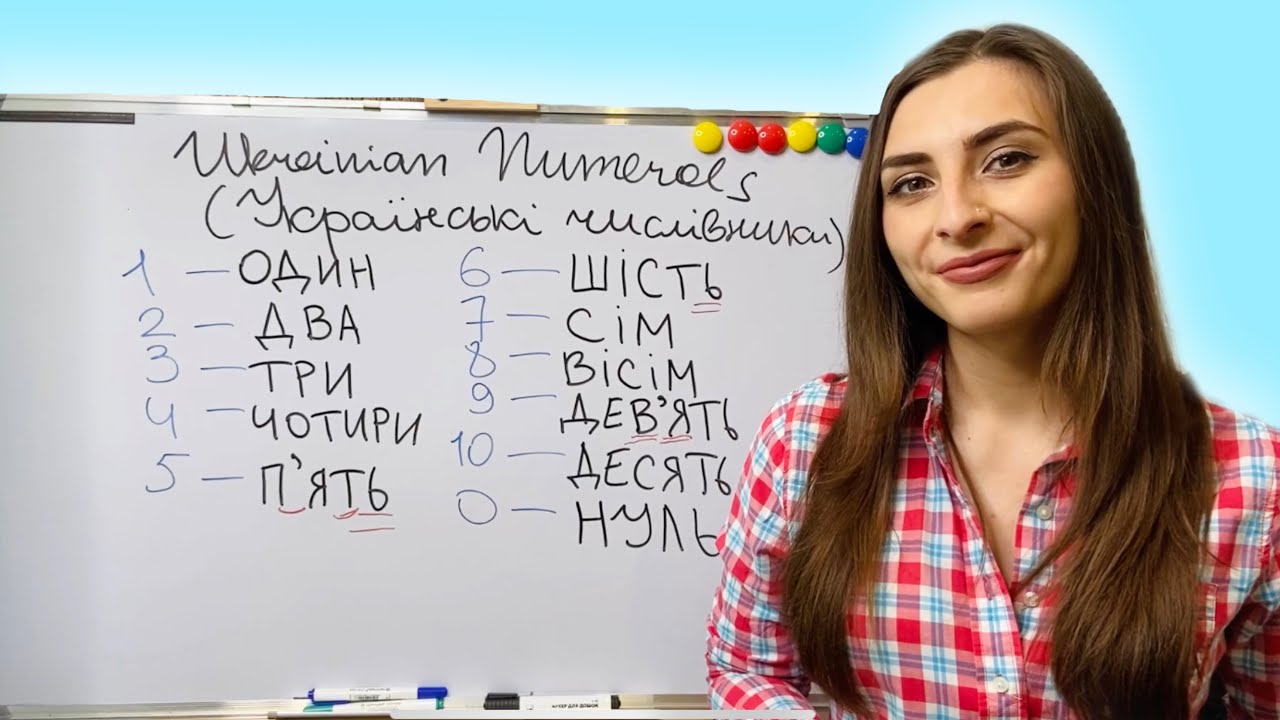 Ukrainian Numerals
(Українські числівники)
1 — ОДИН
2 — ДВА
3 — ТРИ
4 — ЧОТИРИ
5 — П'ЯТЬ
6 — ШІСТЬ
7 — СІМ
8 — ВІСІМ
9 — ДЕВ'ЯТЬ
10 — ДЕСЯТЬ
0 — НУЛЬ